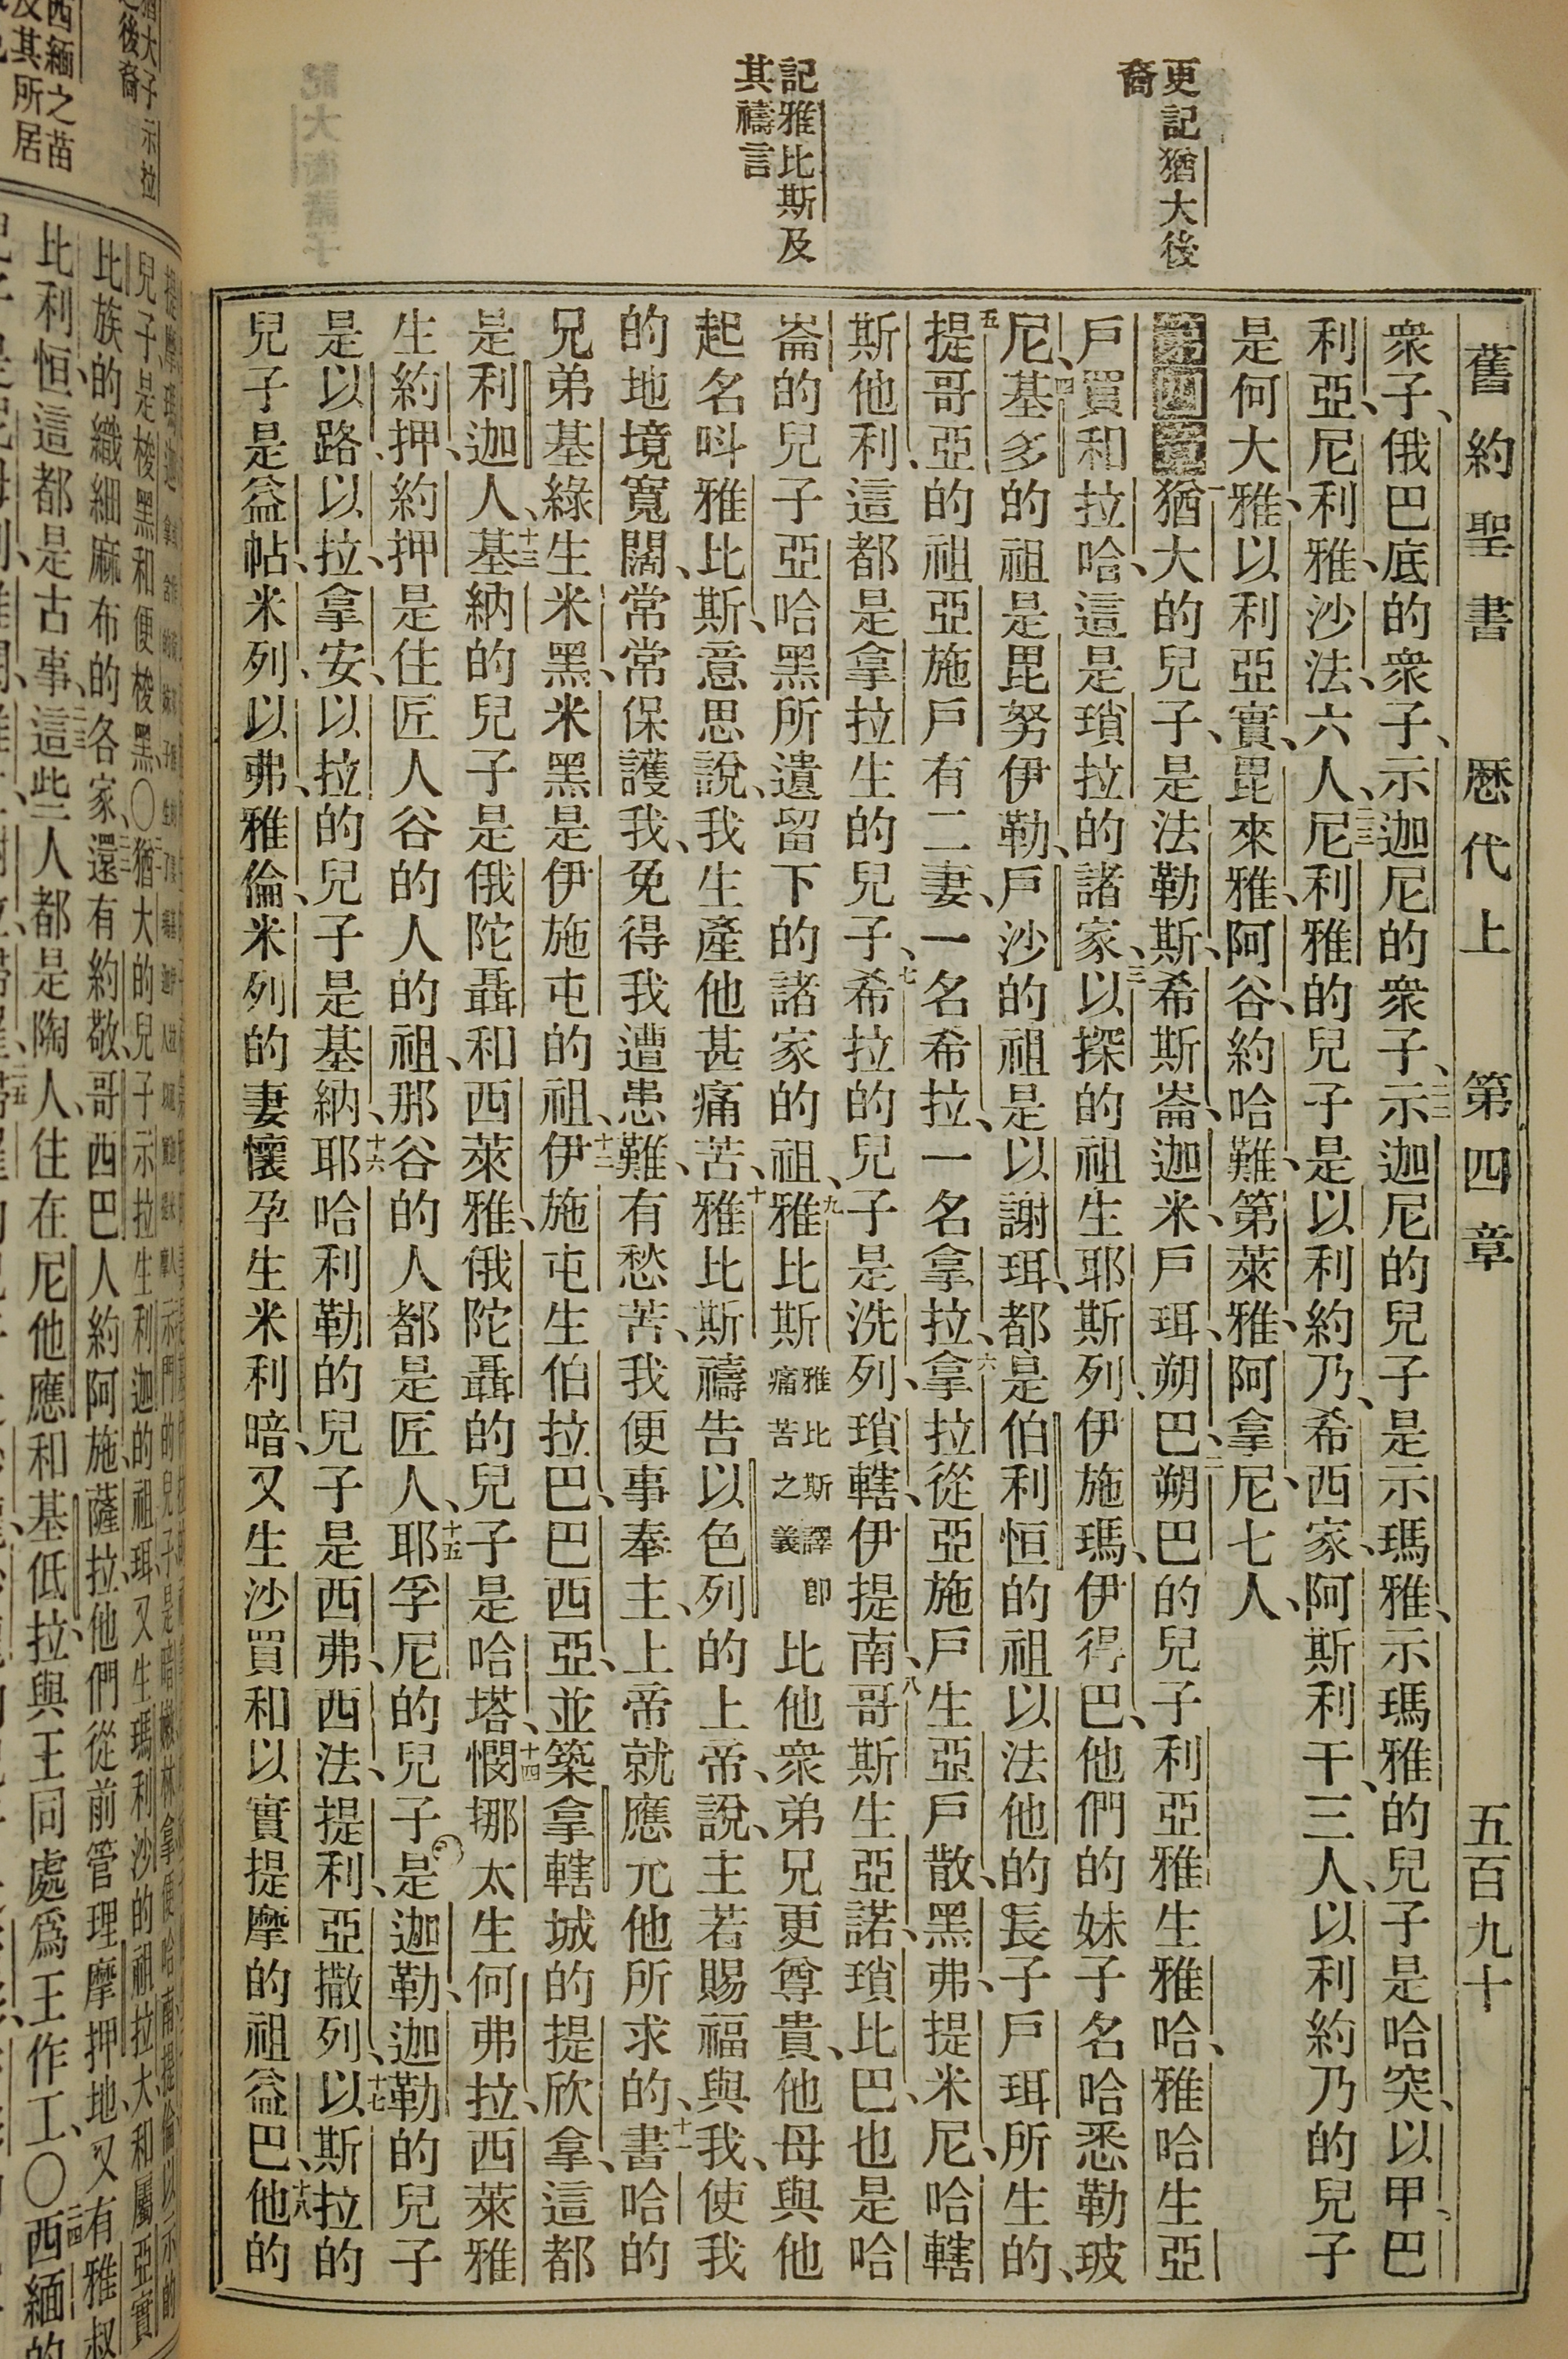 更記猶大後
裔
記雅比斯及
其禱言
舊約聖書 歷代上 第四章 五百九十
衆子、俄巴底的衆子、示迦尼的衆子、二二示迦尼的兒子是示瑪雅、示瑪雅的兒子是哈突、以甲、巴
利亞、尼利雅、沙法、六人、二三尼利雅的兒子是以利約乃、希西家、阿斯利干、三人、以利約乃的兒子
是何大雅、以利亞實、毘來雅、阿谷、約哈難、第萊雅、阿拿尼、七人、
第四章一猶大的兒子、是法勒斯、希斯崙、迦米、戶珥、朔巴、二朔巴的兒子利亞雅生雅哈、雅哈生亞
戶買和拉哈、這是瑣拉的諸家、三以探的祖生耶斯列、伊施瑪、伊得巴、他們的妹子名哈悉勒玻
尼、四基多的祖是毘努伊勒、戶沙的祖是以謝珥、都是伯利恒的祖以法他的長子戶珥所生的、
五提哥亞的祖亞施戶有二妻、一名希拉、一名拿拉、六拿拉從亞施戶生亞戶散、黑弗、提米尼、哈轄
斯他利、這都是拿拉生的兒子、七希拉的兒子是洗列、瑣轄、伊提南、八哥斯生亞諾、瑣比巴、也是哈
崙的兒子亞哈黑所遺留下的諸家的祖、九雅比斯雅比斯譯即痛苦之義比他衆弟兄更尊貴、他母與他
起名呌雅比斯、意思說、我生產他甚痛苦、十雅比斯禱告以色列的上帝、說、主若賜福與我、使我
的地境寬闊、常常保護我、免得我遭患難、有愁苦、我便事奉主、上帝就應允他所求的、十一書哈的
兄弟基綠生米黑、米黑是伊施屯的祖、十二伊施屯生伯拉巴、巴西亞、並築拿轄城的提欣拿、這都
是利迦人、十三基納的兒子是俄陀聶和西萊雅、俄陀聶的兒子是哈塔、十四憫挪太生何弗拉、西萊雅
生約押、約押是住匠人谷的人的祖、那谷的人都是匠人、十五耶孚尼的兒子是迦勒、迦勒的兒子
是以路、以拉、拿安、以拉的兒子是基納、十六耶哈利勒的兒子是西弗、西法、提利、亞撒列、十七以斯拉的
兒子是益帖、米列、以弗、雅倫、米列的妻懷孕生米利暗、又生沙買和以實提摩的祖益巴、十八他的